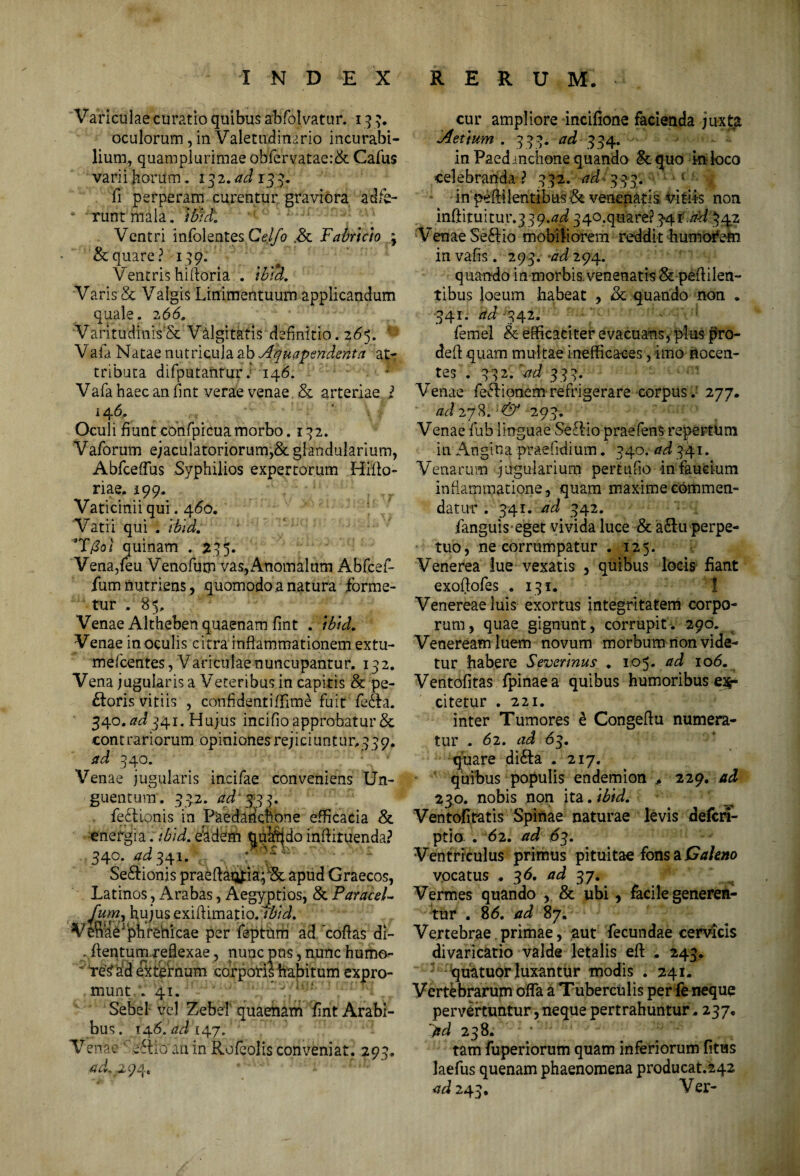 INDEX RERUM.
Variculae curatio quibus abſolvatur. 133.
oculorum, in Valetudinario incurabi-
lium, quamplurimae obſervatae: & Caſus
varii horum. 132. ad 133.
ſi perperam curentur graviora adfe-
runt mala. ibid.
Ventri inſolentes Celſo & Fabricio ;
& quare? 139.
Ventris hiſtoria . ibid.
Varis & Valgis Linimentuum applicandum
quale. 266.
Varitudinis & Valgitatis definitio. 265.
Vaſa Natae nutricula ab Aquapendenta at-
tributa diſputantur. 146.
Vaſa haec an ſint verae venae & arteriae ?
146.
Oculi fiunt conſpicua morbo. 132.
Vaſorum ejaculatoriorum, & glandularium,
Abſceſſus Syphilios expertorum Hiſto-
riae. 199.
Vaticinii qui. 460.
Vatii qui . ibid.
Ὑβοὶ quinam . 235.
Vena, ſeu Venoſum vas, Anomalum Abſceſ-
ſum nutriens, quomodo a natura forme-
tur . 85.
Venae Altheben quaenam ſint . ibid.
Venae in oculis citra inflammationem extu-
meſcentes, Variculae nuncupantur. 132.
Vena jugularis a Veteribus in capitis & pe-
ctoris vitiis , confidentiſſimè fuit ſecta.
340. ad 341. Hujus inciſio approbatur &
contrariorum opiniones rejiciuntur. 339.
ad 340.
Venae jugularis inciſae conveniens Un-
guentum. 332. ad 333.
ſectionis in Paedanchone efficacia &
energia. ibid. eadem quando inſtituenda?
340. ad 341.
Sectionis praeſtantia, & apud Graecos,
Latinos, Arabas, Aegyptios, & Paracel-
ſum, hujus exiſtimatio. ibid.
Venae phrenicae per ſeptum ad coſtas di-
ſtentum reflexae, nunc pus, nunc humo-
res ad externum corporis habitum expro-
munt . 41.
Sebel vel Zebel quaenam ſint Arabi-
bus. 146. ad 147.
Venae ſectio an in Roſeolis conveniat. 293.
ad. 294.
cur ampliore inciſione facienda juxta
Aetium . 333. ad 334.
in Paedanchone quando & quo in loco
celebranda ? 332. ad 333.
in peſtilentibus & venenatis vitiis non
inſtituitur. 339. ad 340. quare? 341 ad 342
Venae Sectio mobiliorem reddit humorem
in vaſis. 293. ad 294.
quando in morbis venenatis & peſtilen-
tibus locum habeat , & quando non .
341. ad 342.
ſemel & efficaciter evacuans, plus pro-
deſt quam multae inefficaces, imo nocen-
tes . 332. ad 333.
Venae ſectionem refrigerare corpus. 277.
ad 278. & 293.
Venae ſub linguae Sectio praeſens repertum
in Angina praeſidium. 340. ad 341.
Venarum jugularium pertuſio in faucium
inflammatione, quam maxime commen-
datur . 341. ad 342.
ſanguis eget vivida luce & actu perpe-
tuo, ne corrumpatur . 125.
Venerea lue vexatis , quibus locis fiant
exoſtoſes . 131.
Venereae luis exortus integritatem corpo-
rum, quae gignunt, corrupit. 290.
Veneream luem novum morbum non vide-
tur habere Severinus . 105. ad 106.
Ventoſitas ſpinae a quibus humoribus ex-
citetur . 221.
inter Tumores è Congeſtu numera-
tur . 62. ad 63.
quare dicta . 217.
quibus populis endemion . 229. ad
230. nobis non ita. ibid.
Ventoſitatis Spinae naturae levis deſcri-
ptio . 62. ad 63.
Ventriculus primus pituitae fons a Galeno
vocatus . 36. ad 37.
Vermes quando , & ubi , facile generen-
tur . 86. ad 87.
Vertebrae primae, aut ſecundae cervicis
divaricatio valde letalis eſt . 243.
quatuor luxantur modis . 241.
Vertebrarum oſſa a Tuberculis per ſe neque
pervertuntur, neque pertrahuntur. 237.
ad 238.
tam ſuperiorum quam inferiorum ſitus
laeſus quenam phaenomena producat. 242
ad 243. Ver-